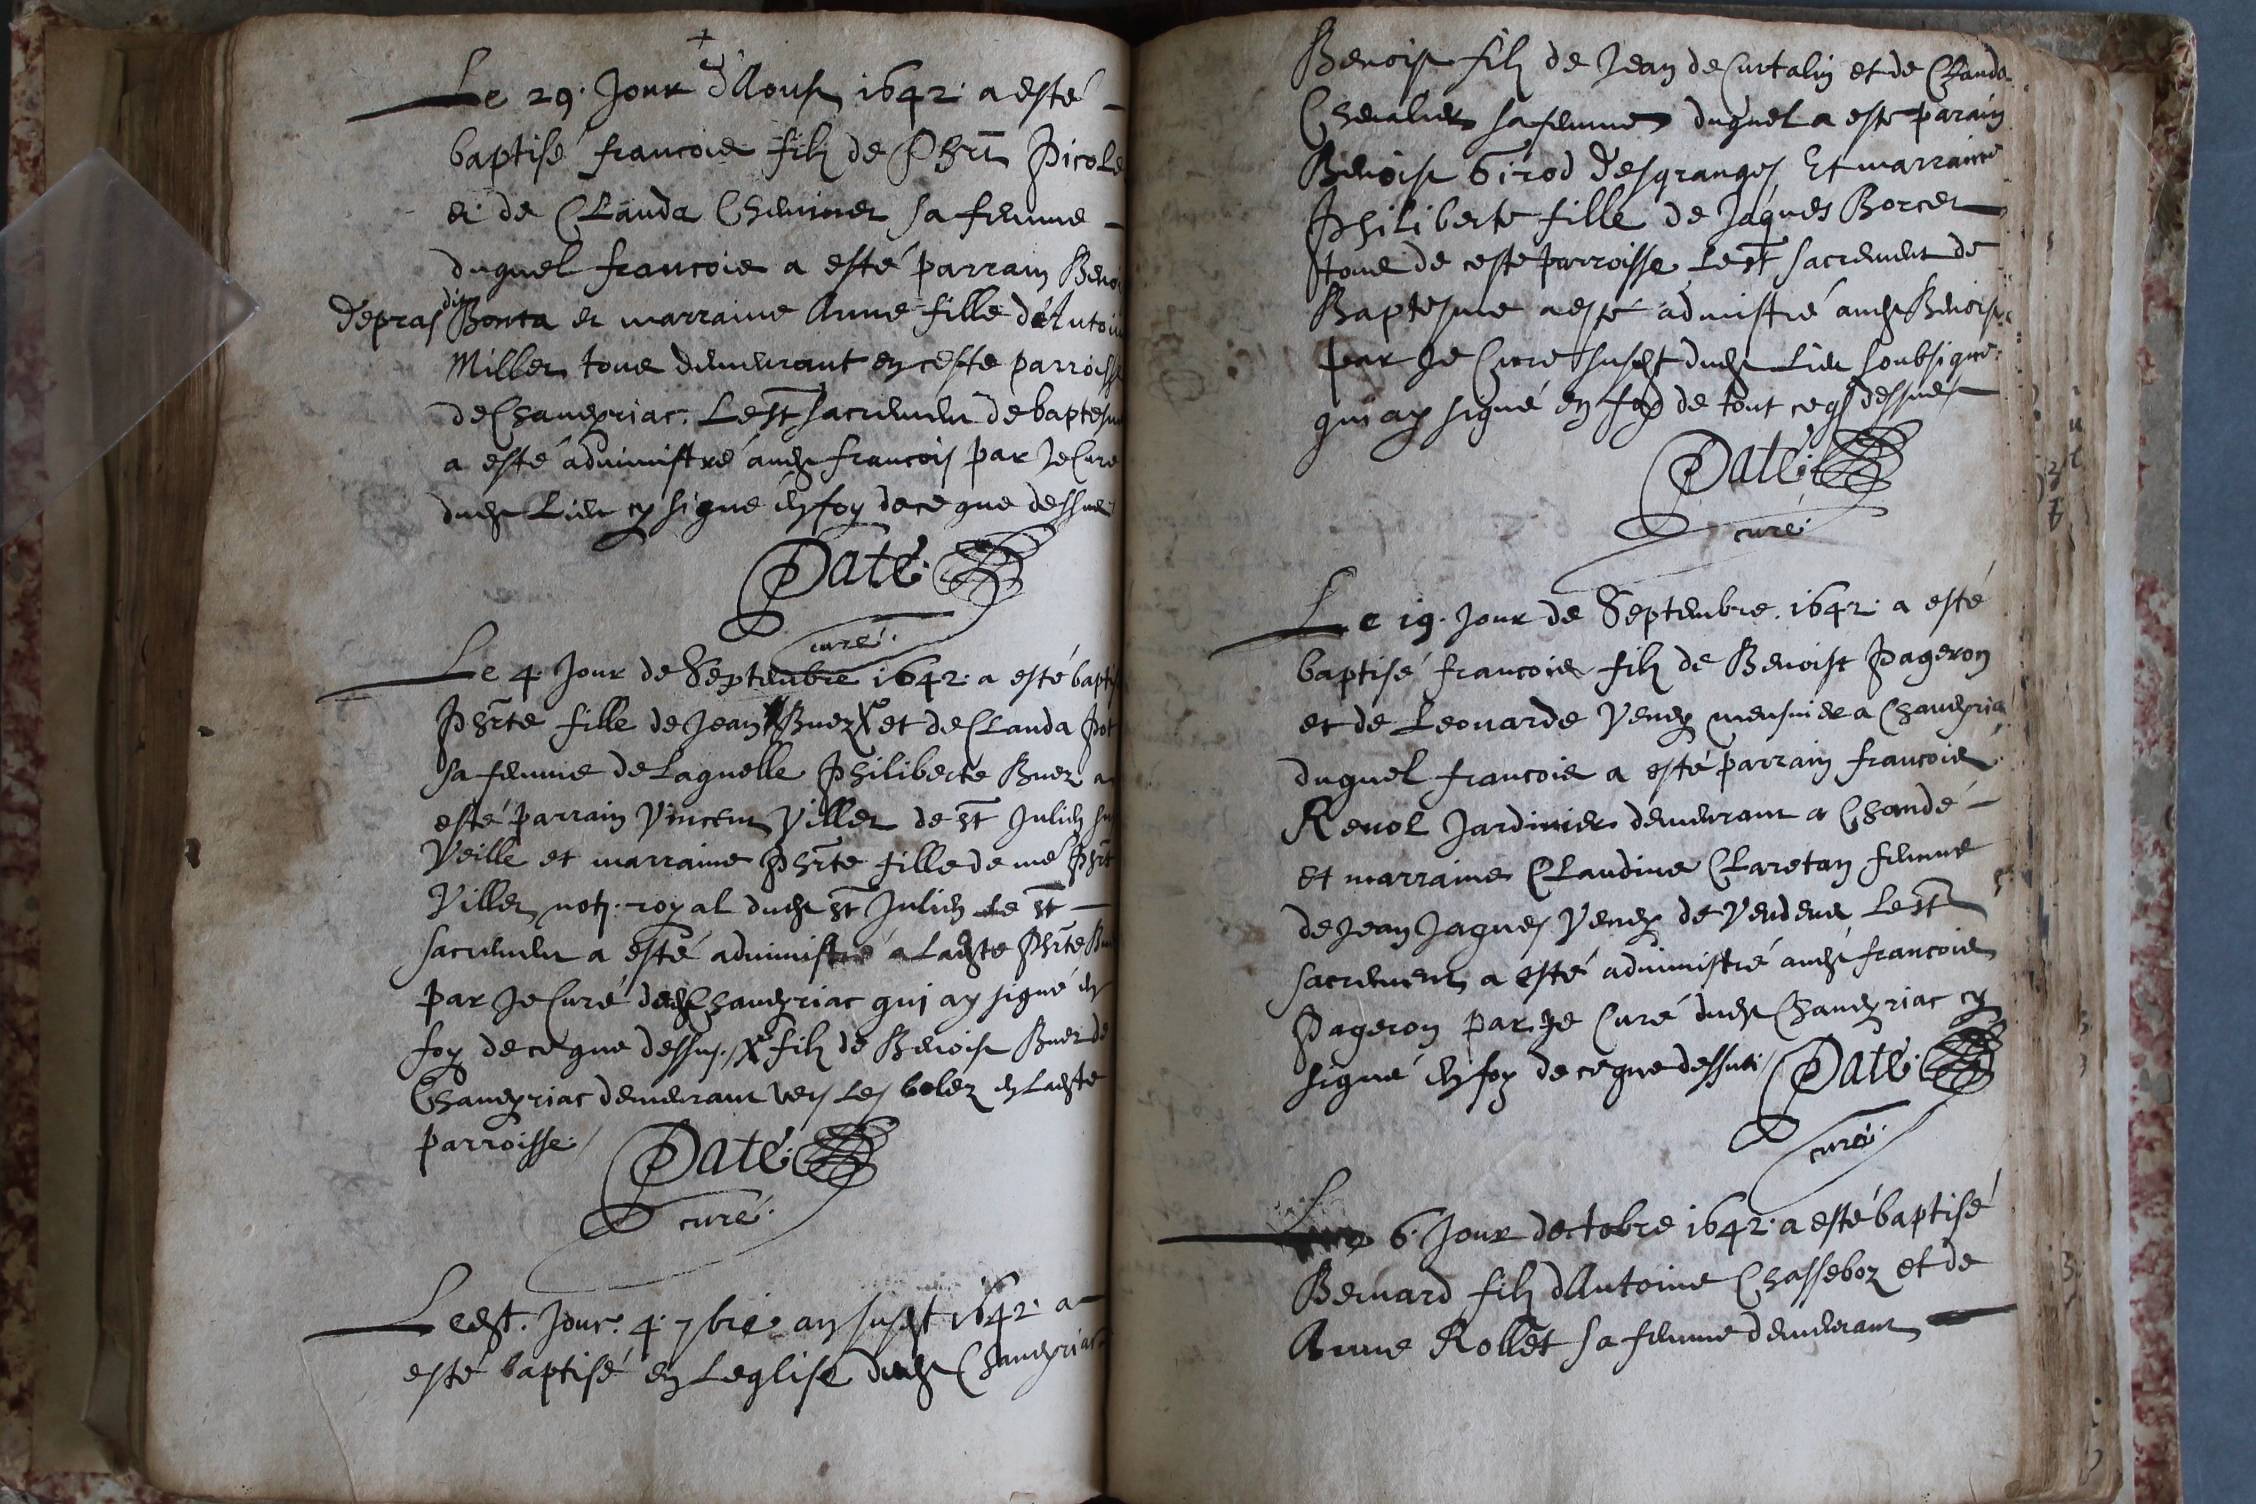 Le 29. Jour d'Aoust 1642. a esté
baptisé francois filz de Phrt Picole
et de Clauda Cheminet sa femme
duquel francois a esté parrain Benoi
depras dit Bonta et marraine Anne fille dAntoin
Millet tous demeurant en ceste parroisse
de Chaveyriac. Le st sacrement de baptesm
a esté administré audt francois par Je Curé
dudt Lieu cy signe en foy de ce que dessus
Daté.
curé.
Le 4. Jour de Septembre 1642. a esté bapti
Phrte fille de Jean Buez X et de Clauda Pot
sa femme de Laquelle Philiberte Buez a
esté parrain Vincent Villet de st Julien su
Veille et marraine Phrte fille de me Phrt
Villet not. royal dudt st Julien Le st
sacrement a esté administré a Ladte Phrte Bu
par Je Curé dudt Chaveyriac qui ay signé en
foy de ce que dessus. X filz de Benoist Buez de
Chaveyriac demeurant vers Les bolez en Ladte
parroisse.
Daté.
curé.
Ledt. Jour. 4. 7bre an susdt 1642. a
esté baptisé en Leglise dudt Chaveyriac
Benoist filz de Jean de Curtalin et de Clauda
Chevalier sa femme duquel a esté parain
Benoist Girod desgranges Et marraine
Philiberte fille de Jaques Borcet
tous de ceste parroisse Le st sacrement de
Baptesme a esté admistré audt Benoist
par Je Curé susdt dudt Lieu soubsigné.
qui ay signé en foy de tout ce q dessus
Daté.
curé.
Le 19. Jour de Septembre. 1642. a esté
baptisé francois filz de Benoist Pageron
et de Leonarde Veney meusnier a Chaveyria
duquel francois a esté parrain francois
Revol Jardinier demeurant a Chandé
Et marraine Claudine Claretan femme
de Jean Jaques Veney de Vendens Le st
sacrement a esté administré audt francois
Pageron par Je Curé dudt Chaveyriac cy
signé en foy de ce que dessus Daté.
curé.
6. Jour doctobre 1642. a esté baptisé
Bernard filz dAntoine Chasseboz et de
Anne Rollet sa femme demeurant